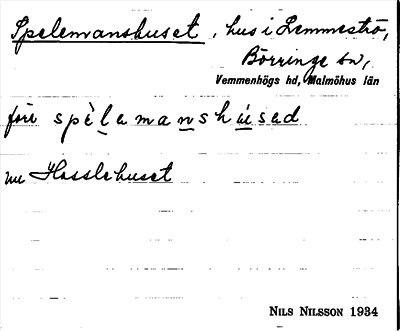 Spelemanshuset, hus i Lemmeströ,
Börringe sn,
Vemmenhögs hd, Malmöhus län
förr spèlamanshúsed
nu Hasslehuset
NILS NILSSON 1934